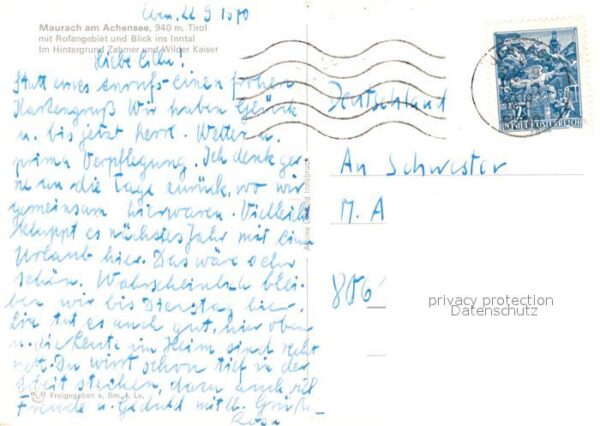 22 9 1970
Maurach am Achensee, 940 m, Tirol
mit Rofangebiet und Blick ins Inntal
Im Hintergrund Zahmer und Wilder Kaiser
Liebe
Statt eines Anrufs einen frohen
Kartengruß Wir haben Glück
u. bis jetzt herrl. Wetter u.
prima Verpflegung. Ich denke ger-
ne an die Tage zurück, wo wir
gemeinsam hier waren. Vielleicht
klappt es nächstes Jahr mit ein
Urlaub hier. Das wäre sehr
schön. Wahrscheinlich blei-
ben wir bis Dienstag hier.
tut es auch gut, hier oben
u. die Leute im Heim sind recht
nett. Du wirst schon tief in der
Arbeit stecken, dazu auch viel
Freude u. Geduld mit lb. Grüße
Rosa
Freigegeben v. Bm. f. Lv.
Deutschland
An Schwester
M. A
806
REPUBLIK ÖSTERREICH
privacy protection
Datenschutz